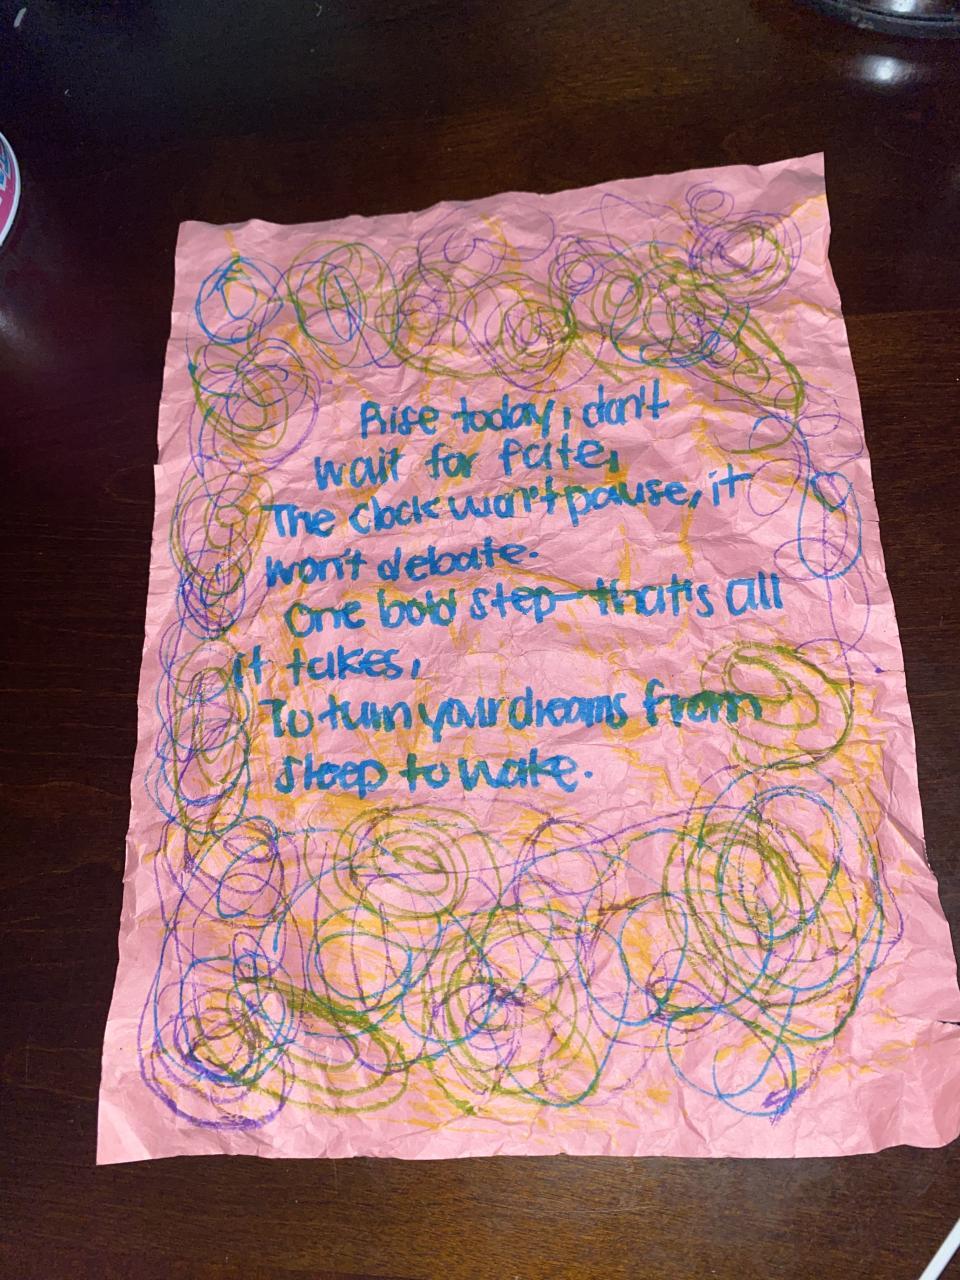 Rise today, don't
wait for fate,
The clock won't pause, it
won't debate.
One bold step—that's all
it takes,
To turn your dreams from
sleep to wake.